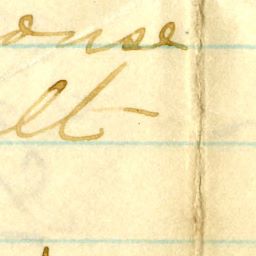 onse
lt